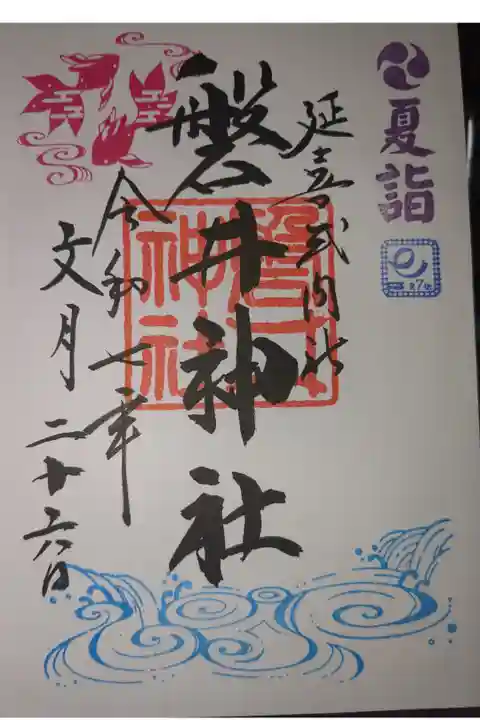 夏詣
延喜式内社
磐井神社
磐井神社
令和七年
文月二十六日